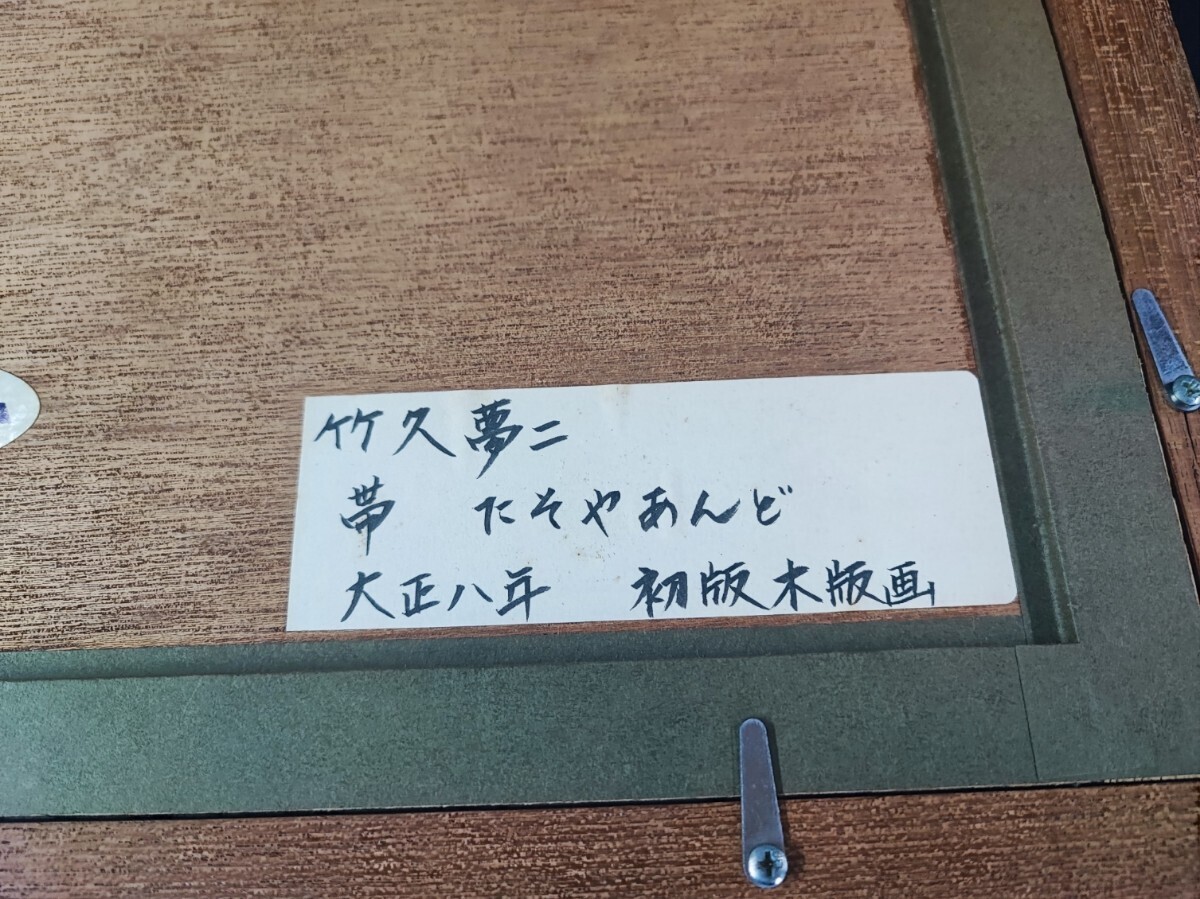 竹久夢二
帯　たそやあんど
大正八年　初版木版画